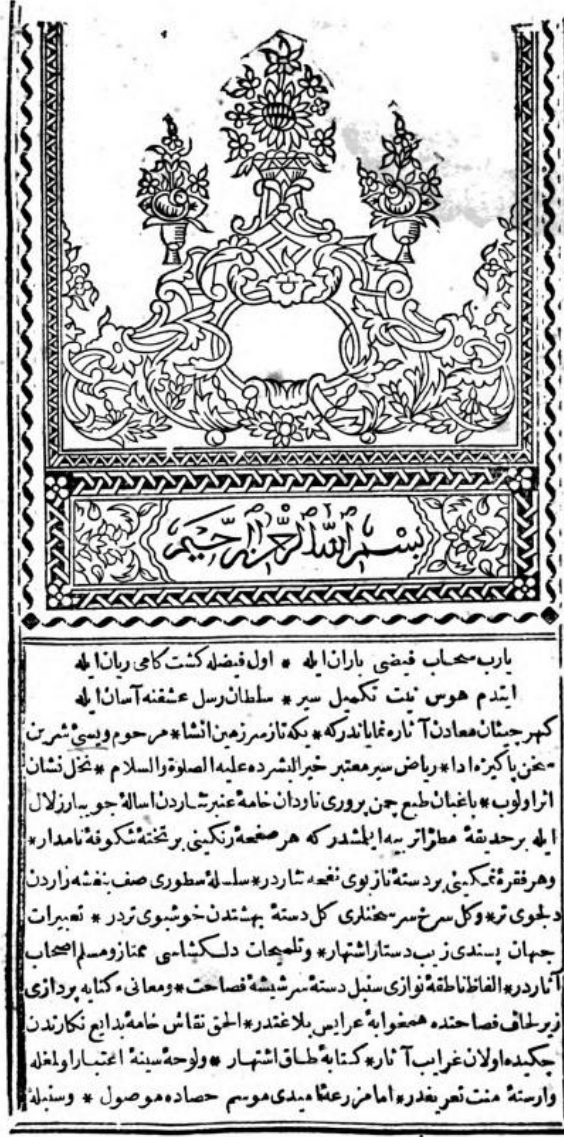 بسم الله الرحمن الرحيم
يارب سحاب فيضى باران ايله * اول فيضله كشت كامى ريان ايله
ايتدم هوس نيت تكميل سير * سلطان رسل عشقنه آسان ايله
كهر چينان معادن آثاره نمايان‌دركه * يكه تاز سرزمين انشا * مرحوم ويسئ شيرين
سخن پاكيزه ادا * رياض سير معتبر خير البشرده عليه الصلوة والسلام * نخل نشان
اثر اولوب * باغبان طبع چمن پرورى ناودان خامهٔ عنبر نثاردن اسالهٔ جويبار زلال
ايله بر حديقهٔ مطرا تربيه ايلمشدر كه هر صفحهٔ رنكينى بر تختهٔ شكوفهٔ نامدار *
وهر فقرهٔ نمكينى بر دستهٔ ناز بوى نفحه نثاردر * سلسلهٔ سطورى صف بنفشه زاردن
دلجوى تر * وكل سرخ سر سخنلرى كل دستهٔ بهشتدن خوشبوى تردر * تعبيرات
جهان پسندى زيب دستار اشتهار * وتلميحات دلكشاسى ممتاز ومسلم اصحاب
آثاردر * الفاظ ناطقه نوازى سنبل دستهٔ سر شيشهٔ فصاحت * ومعانىء كنايه پردازى
زير لحاف فصاحتده همخوابهٔ عرايس بلاغتدر * الحق نقاش خامهٔ بدايع نكارندن
چكيده اولان غرايب آثار * كتابهٔ طاق اشتهار * ولوحهٔ سينهٔ اعتبار اولمغله
وارستهٔ منت تعريفدر * اما مزرعهٔ اميدى موسم حصاده موصول * وسنبلهٔ